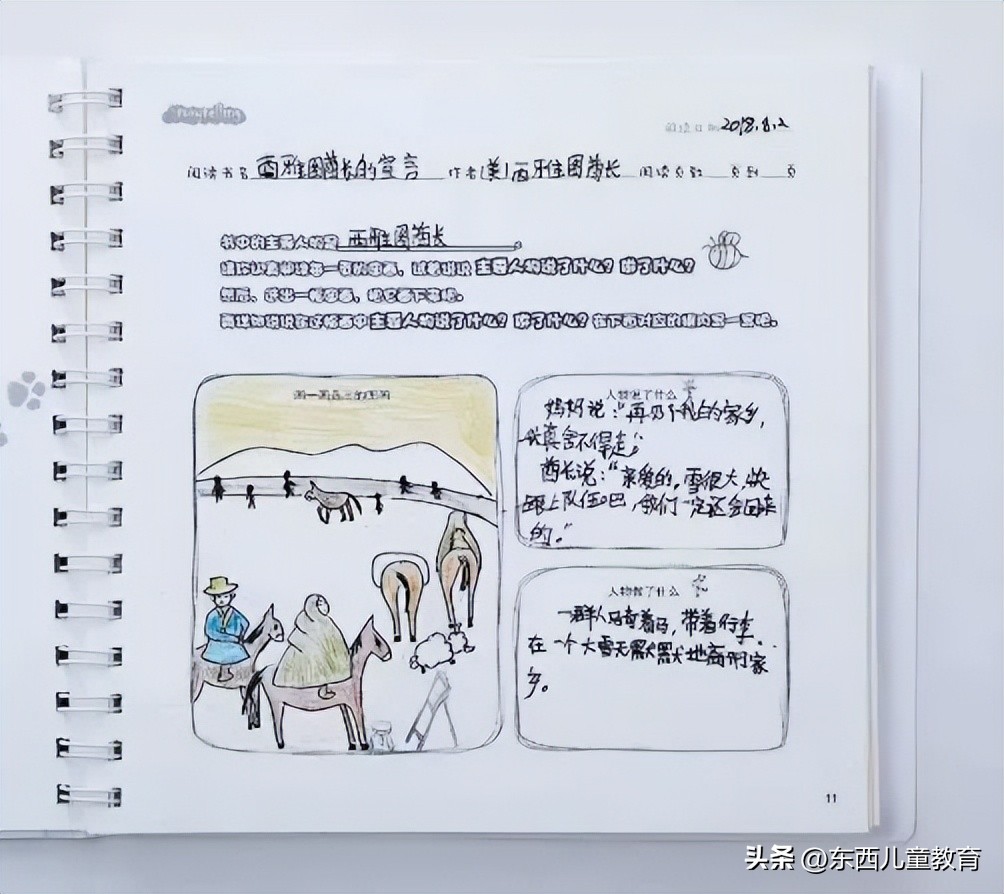 storytelling
阅读日期 2018.8.2
阅读书名 西雅图酋长的宣言 作者 [美]西雅图酋长 阅读页数 页到 页
书中的主要人物是 西雅图酋长
请你认真阅读每一页的图画，试着说说 主要人物说了什么？做了什么？
然后，选出一幅图画，把它画下来吧。
再详细说说在这幅画中主要人物说了什么？做了什么？在下面对应的框内写一写吧。
画一画
人物说了什么
妈妈说：“再见了我的家乡，
我真舍不得走”
酋长说：“亲爱的，雪很大，快
跟上队伍吧，我们一定还会回来
的。”
人物做了什么
一群人马骑着马，带着行李，
在一个大雪天默默地离开家
乡。
11
头条 @东西儿童教育